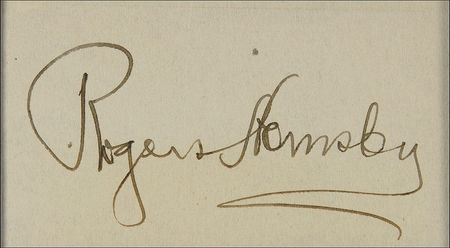 Rogers Hornsby